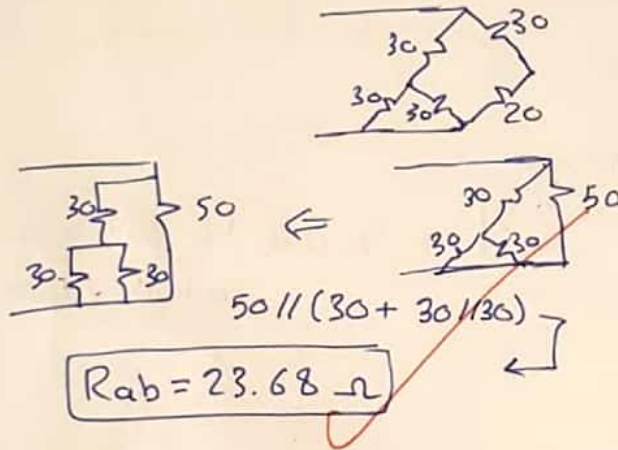 30
30
30
30
20
30
50
30
30
⇐
30
50
30
30
50 // (30 + 30//30)
Rab = 23.68 Ω